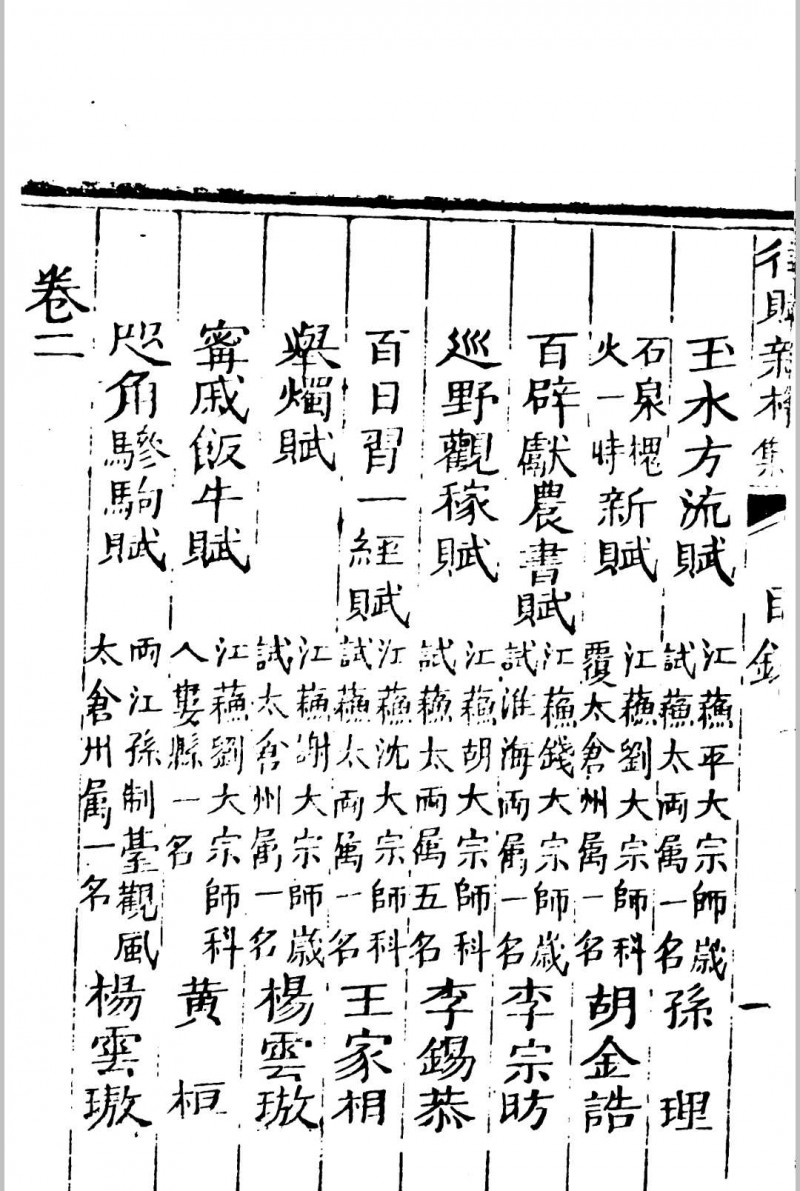 律賦新機集 目錄 一
玉水方流賦 江蘓平大宗師歲試蘓太両属一名 孫理
石泉槐火一時新賦 江蘓劉大宗師科覆太倉州属一名 胡金誥
百辟獻農書賦 江蘓錢大宗師歲試淮海両属一名 李宗昉
巡野觀稼賦 江蘓胡大宗師科試蘓太両属五名 李錫恭
百日習一經賦 江蘓沈大宗師科試蘓太両属一名 王家相
舉燭賦 江蘓謝大宗師歲試太倉州属一名 楊雲璈
甯戚飯牛賦 江蘓劉大宗師科入婁縣一名 黄桓
咫角驂駒賦 両江孫制臺觀風太倉州属一名 楊雲璈
卷二